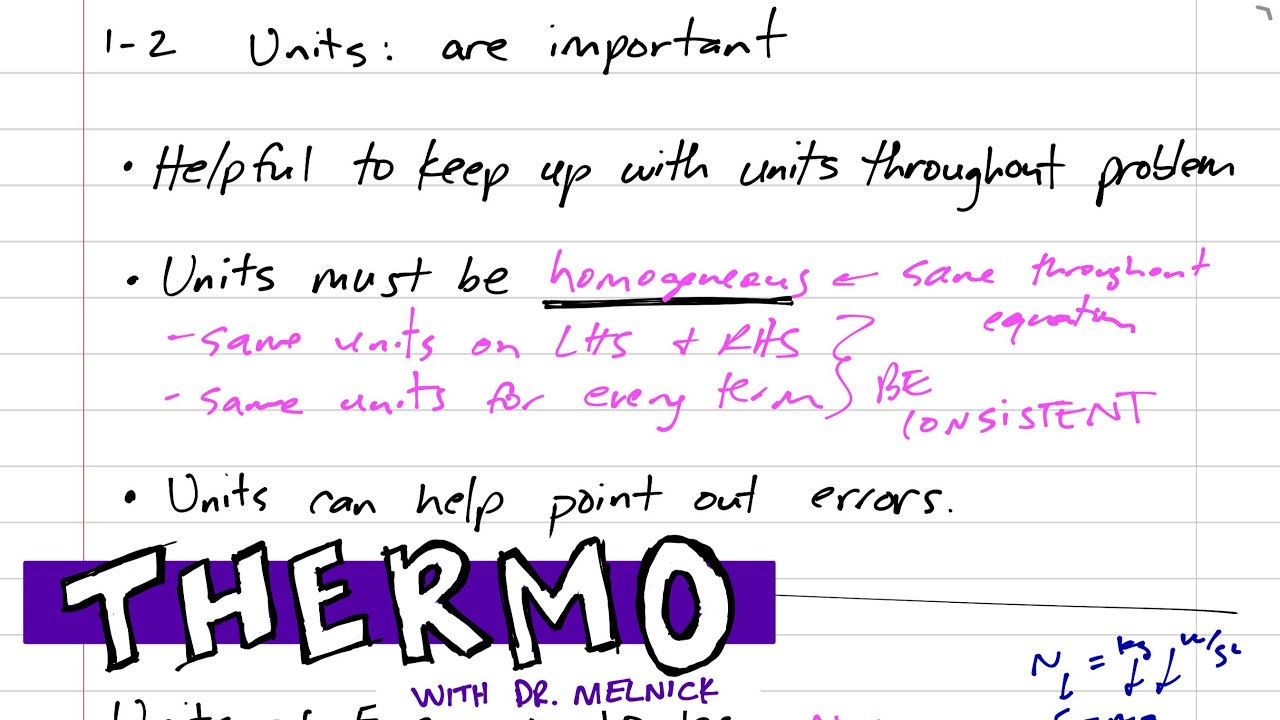 1-2 Units: are important
• Helpful to keep up with units throughout problem
• Units must be homogeneous ← same throughout
equation
- same units on LHS & RHS
- same units for every term
BE
CONSISTENT
• Units can help point out errors.
THERMO
WITH DR. MELNICK
N = kg m/s²
Units of